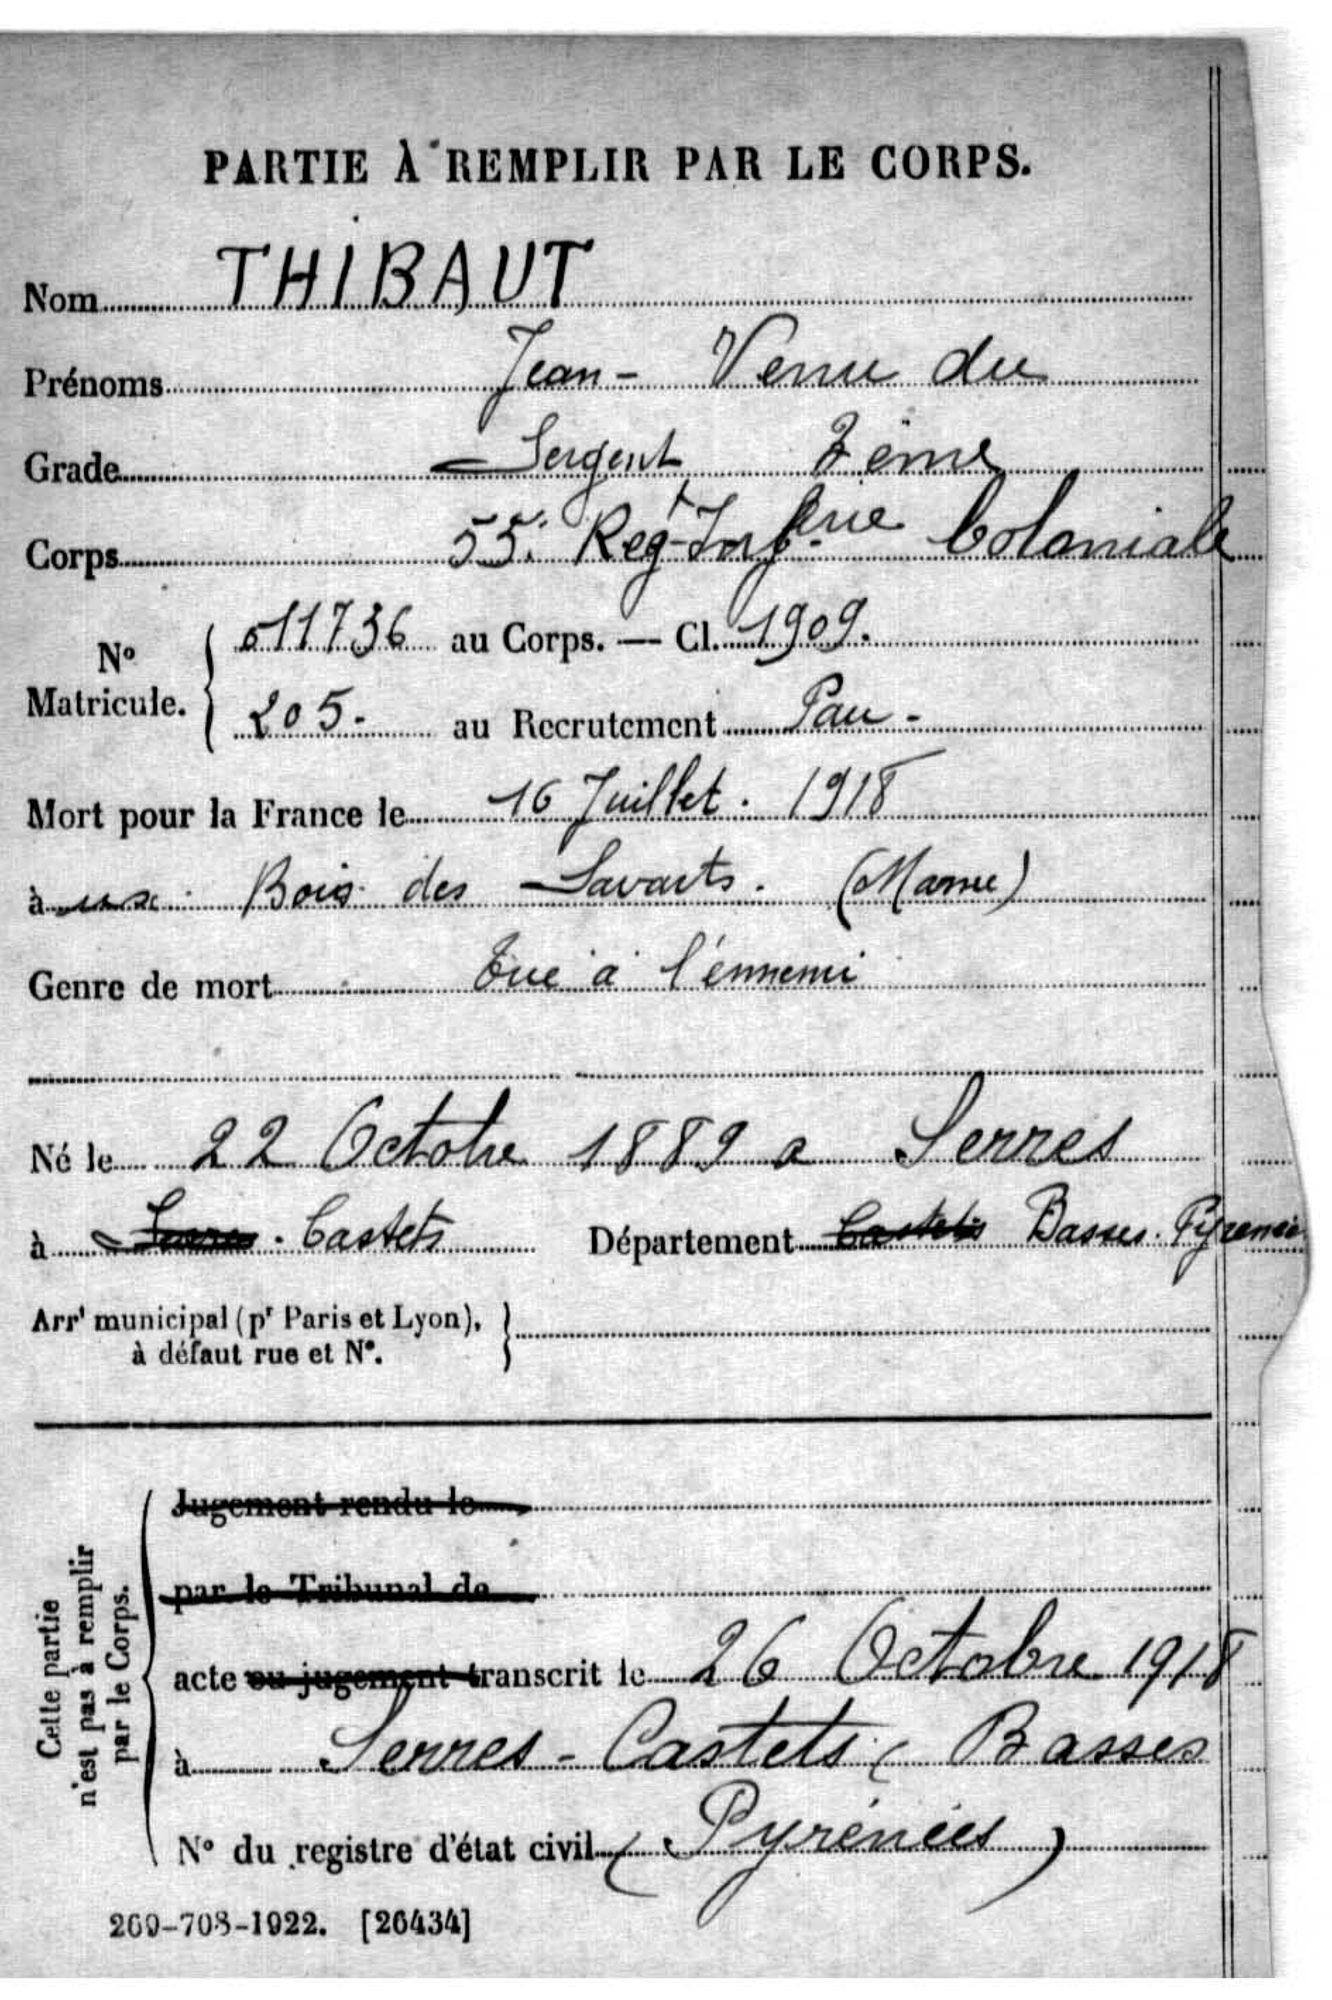 PARTIE À REMPLIR PAR LE CORPS.
Nom THIBAUT
Prénoms Jean - Venu du
Grade Sergent 2ème
Corps 55e Regt Inferie Coloniale
No Matricule. 011736 au Corps. — Cl. 1909.
205 - au Recrutement Pau -
Mort pour la France le 16 Juillet. 1918
à Bois des Savarts. (Marne)
Genre de mort Tué à l'énnemi
Né le 22 Octobre 1889 a Serres
à Serres - Castets Département Castets Basses. Pyrénées
Arrt municipal (pr Paris et Lyon),
à défaut rue et N°.
Cette partie
n'est pas à remplir
par le Corps.
Jugement rendu le
par le Tribunal de
acte ou jugement transcrit le 26 Octobre 1918
à Serres - Castets ( Basses
N° du registre d'état civil ( Pyrénées )
269-708-1922. [26434]